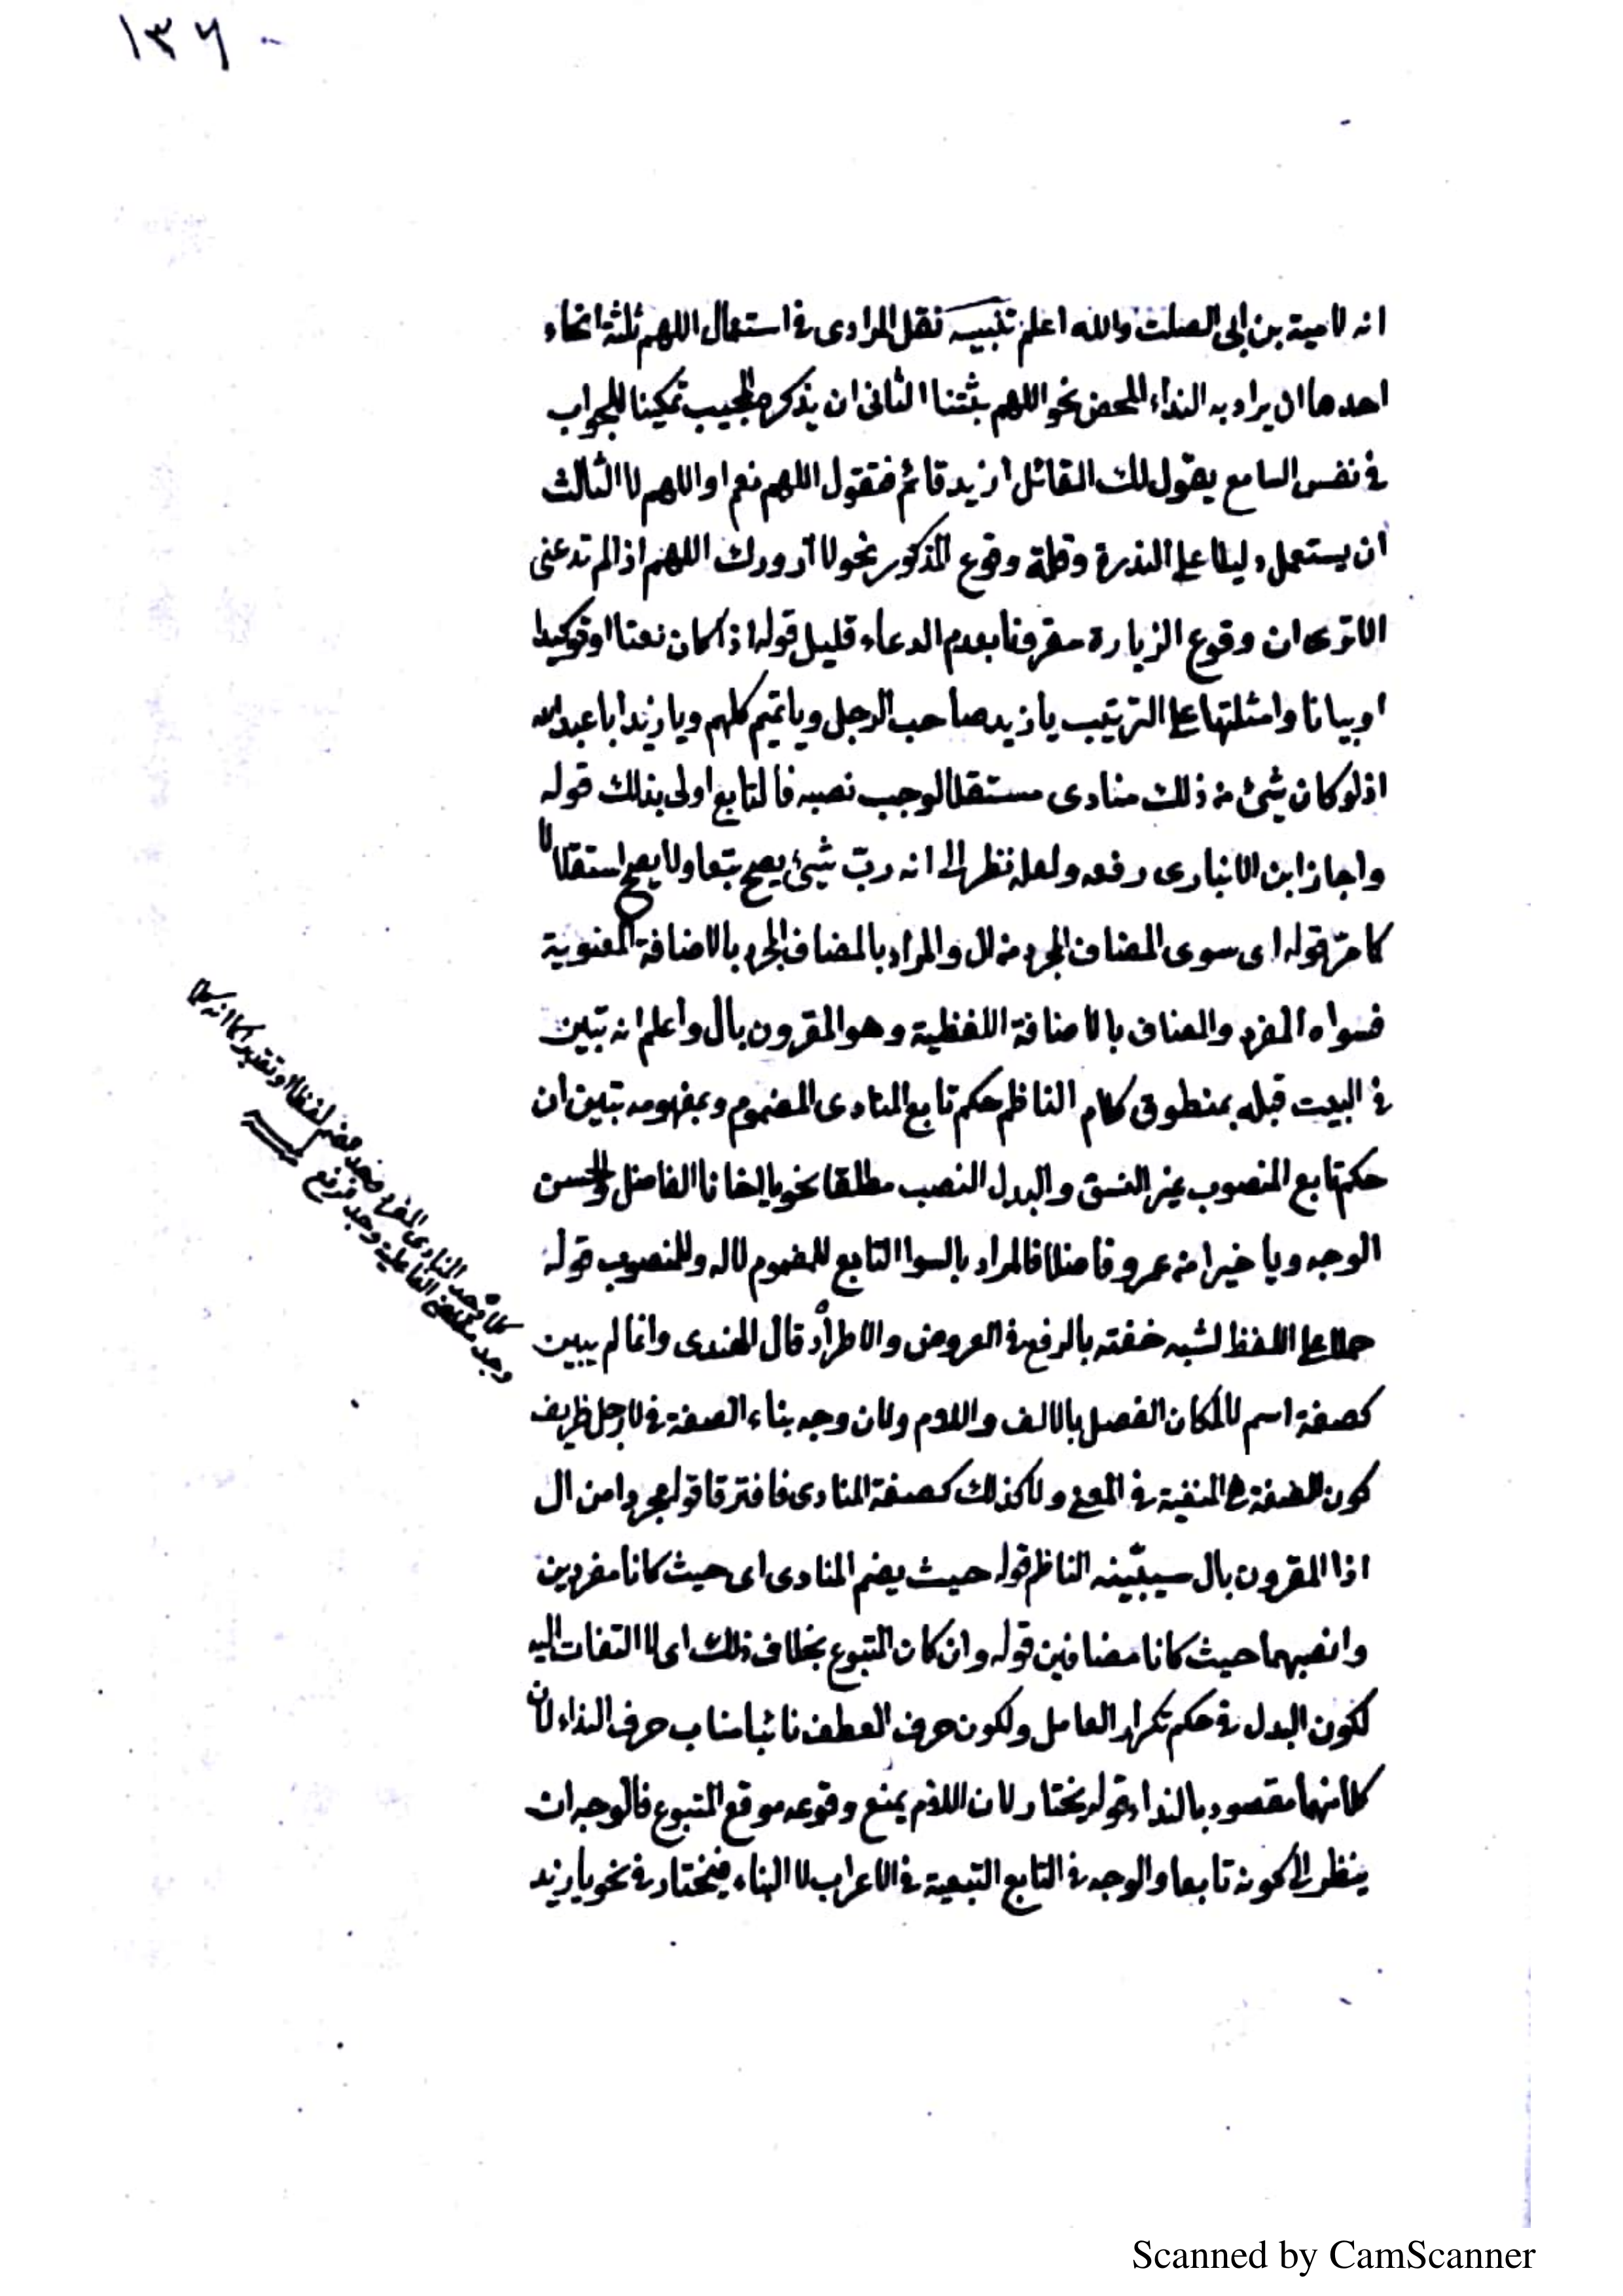 ١٣٦
انه لامية بن ابى الصلت والله اعلم تنبيه نقل المرادى فى استعمال اللهم ثلثة انحاء
احدها ان يراد به النداء المحض نحو اللهم بثتنا الثانى ان يذكره المجيب تمكينا للجواب
فى نفس السامع يقول لك القائل أزيد قائم فتقول اللهم نعم او اللهم لا الثالث
ان يستعمل دليلا على النذرة وقلة وقوع المذكور نحو لا أزورك اللهم اذا لم تدعنى
الا ترى ان وقوع الزيارة مقرونا بعدم الدعاء قليل قوله اذا كان نعتا او توكيدا
او بيانا وامثلتها على الترتيب يا زيد صاحب الرجل ويا تميم كلهم ويا زيد ابا عبد الله
اذ لو كان شئ من ذلك منادى مستقلا لوجب نصبه فالتابع اولى بذلك قوله
واجاز ابن الانبارى رفعه ولعله نظر الى انه ربّ شئ يصح تبعا ولا يصح استقلالا
كما مرّ قوله اى سوى المضاف المجرد من ال والمراد بالمضاف المجرد بالاضافة المعنوية
فسواه المفرد والمضاف بالاضافة اللفظية وهو المقرون بال واعلم انه تبين
فى البيت قبله بمنطوق كلام الناظم حكم تابع المنادى المضموم وبمفهومه تبين ان
حكم تابع المنصوب غير النسق والبدل النصب مطلقا نحو يا اخانا الفاضل والحسن
الوجه ويا خيرا من عمرو فاضلا فالمراد بالسوا التابع للمضموم لا له وللمنصوب قوله
حملا على اللفظ لشبه خفته بالرفع فى العروض والاطراد قال الهندى وانما لم يبين
كصفة اسم لا لمكان الفصل بالالف واللام ولان وجه بناء الصفة فى لا رجل ظريف
كون الصفة هى المنفية فى المعنى ولا كذلك كصفة المنادى فافترقا قوله مجردا من ال
اذا المقرون بال سيبيّنه الناظم قوله حيث يضم المنادى اى حيث كانا مفردين
وانصبهما حيث كانا مضافين قوله وان كان المتبوع بخلاف ذلك اى لا التفات اليه
لكون البدل فى حكم تكرار العامل ولكون حرف العطف نائبا مناب حرف النداء لان
كلا منهما مقصود بالنداء قوله يختار لان اللام يمنع وقوعه موقع المتبوع فالوجه ان
ينظر الى كونه تابعا والوجه فى التابع التبعية فى الاعراب لا البناء فيختار فى نحو يا زيد
كلما وجد المنادى المفرد وجد ضمه لفظا او تقديرا كما انه كلما
وجد مقتضى الفاعلية وجد فرفع
Scanned by CamScanner